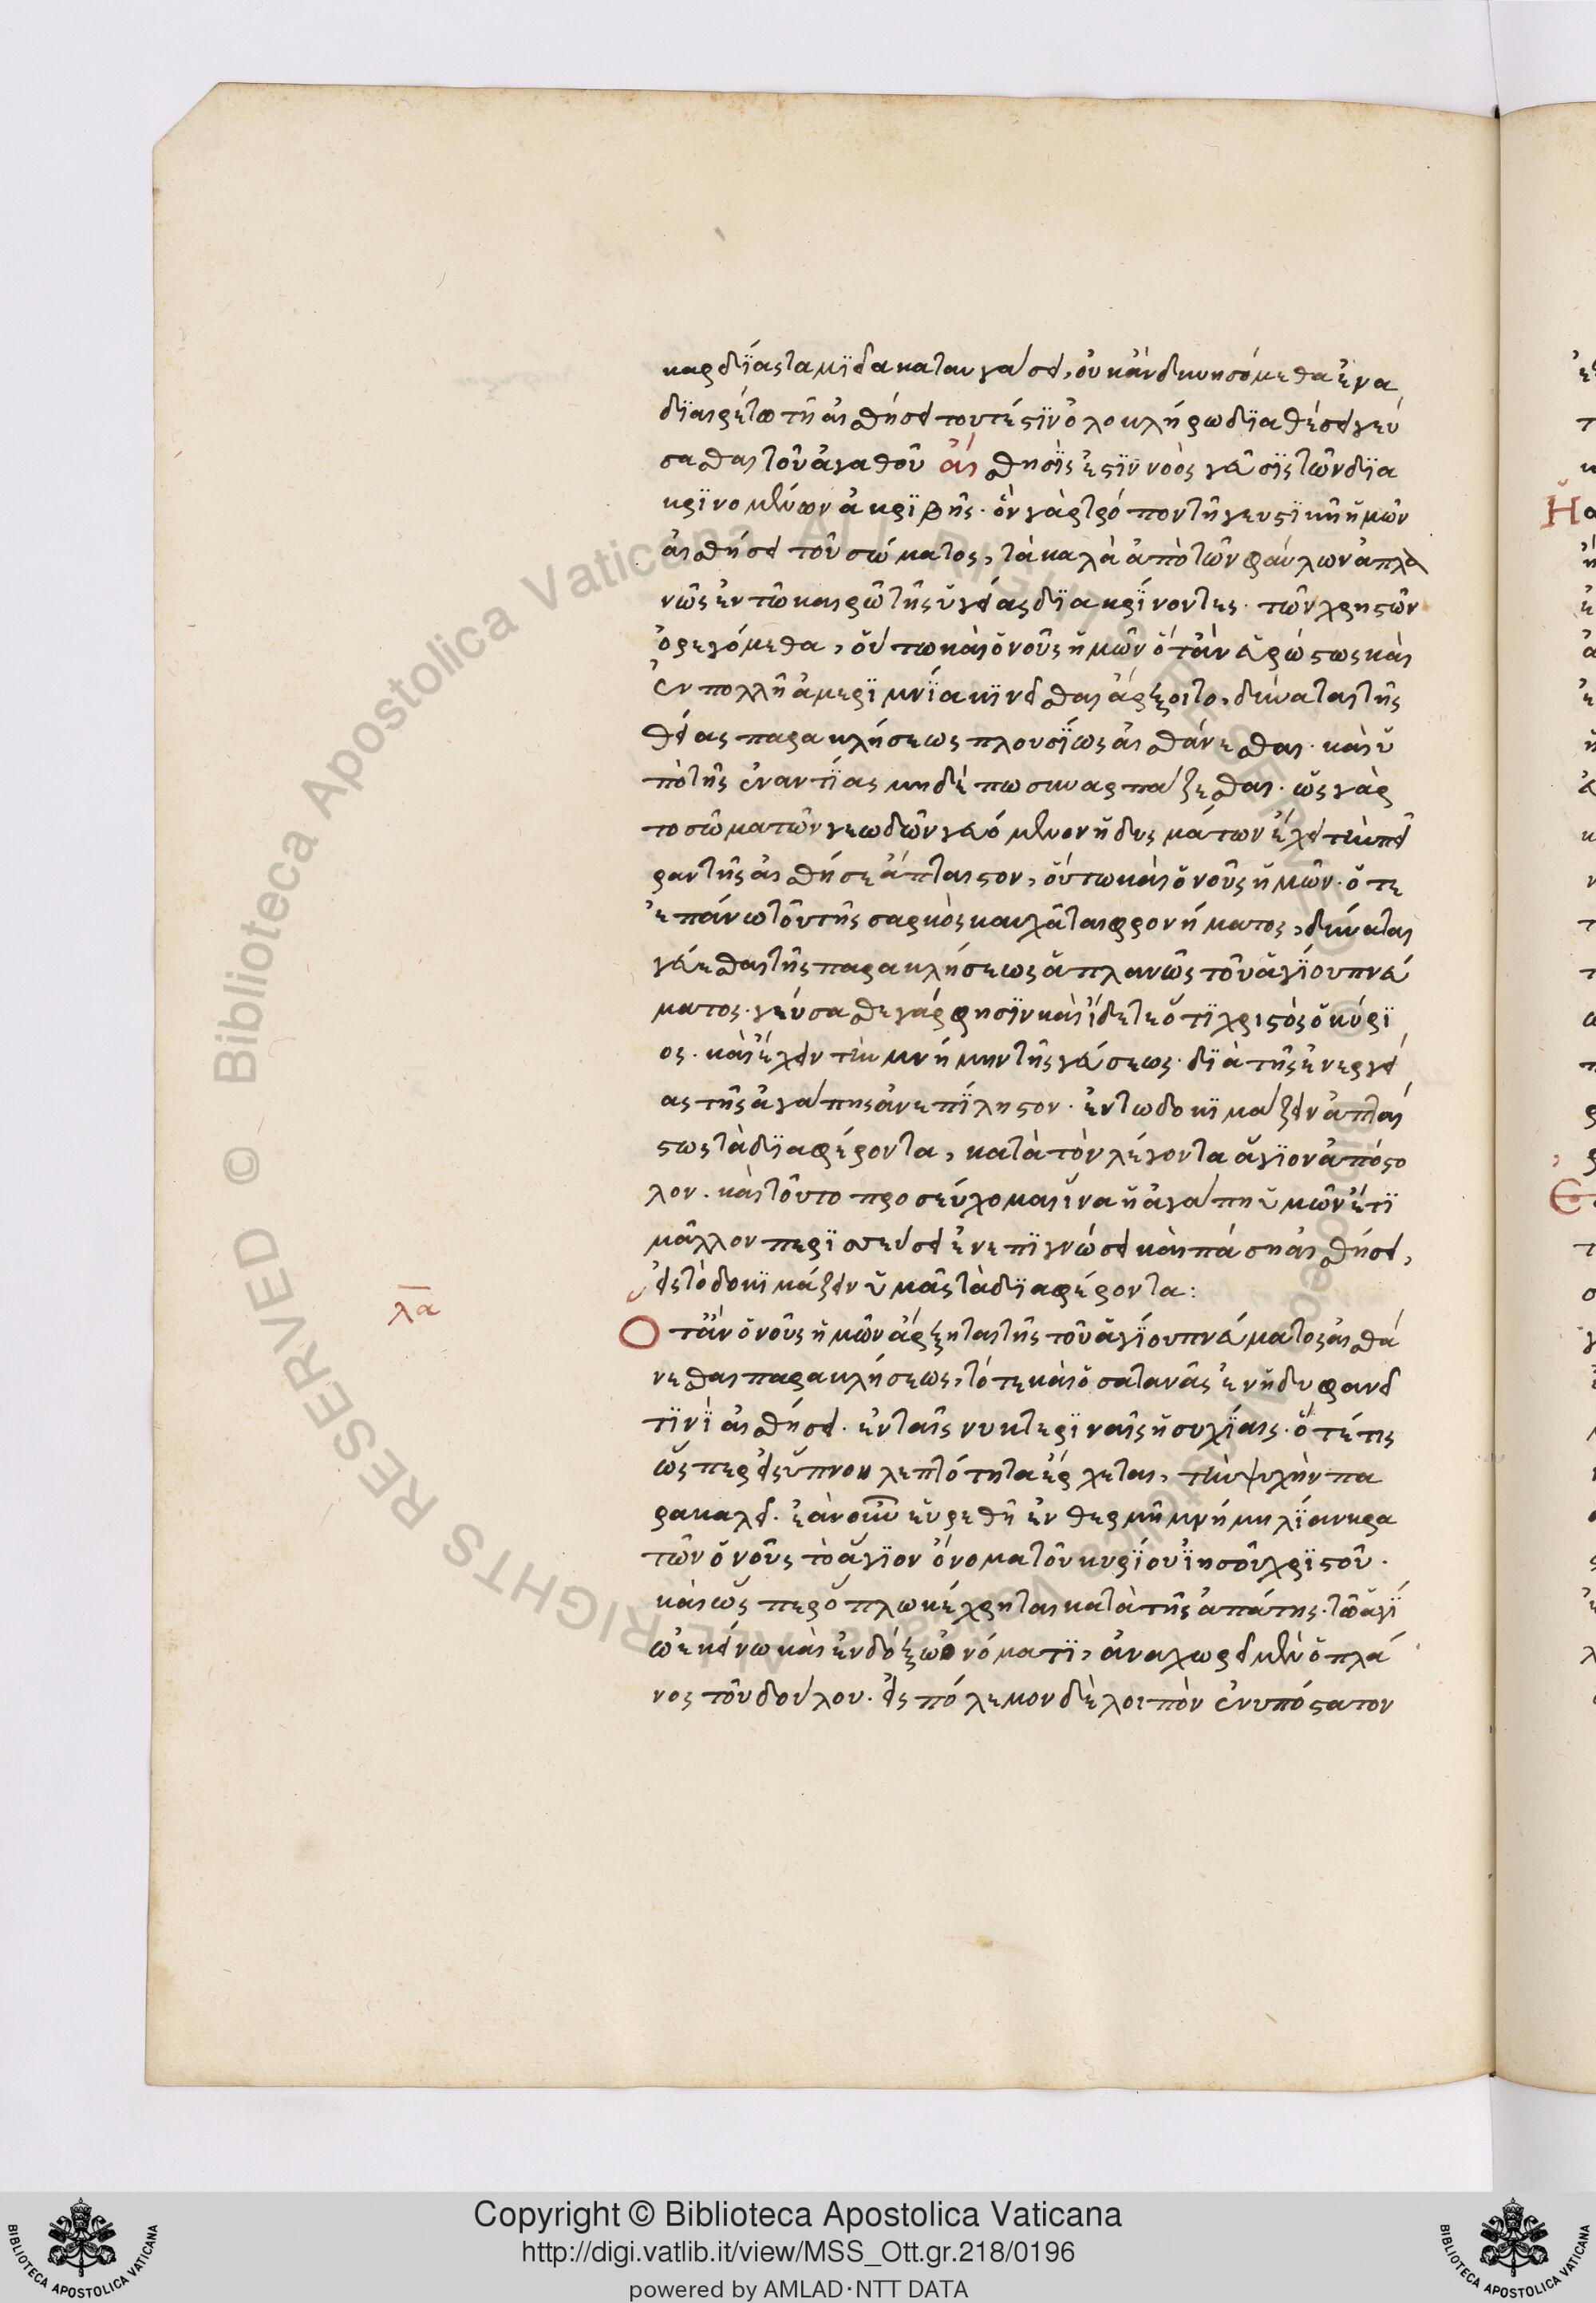 καρδίας ταμϊεῖα καταυγάσει, οὐκ ἂν δυνησόμεθα ἐν ἀ
διαιρέτω τῆ αἰσθήσει τουτέστιν ὁλοκλήρω διαθέσει γεύ
σασθαι τοῦ ἀγαθοῦ αἴσθησίς ἐστιν νοὸς γεῦσις τῶν δια
κρινομένων ἀκριβής. ὃν γὰρ τρόπον τῆ γευστικῆ ἡμῶν
αἰσθήσει τοῦ σώματος, τὰ καλὰ ἀπὸ τῶν φαύλων ἀπλα
νῶς ἐν τῶ καιρῶ τῆς ὑγείας διακρίνοντες. τῶν χρηστῶν
ὀρεγόμεθα, οὕτω καὶ ὁ νοῦς ἡμῶν ὅταν εὐρώστως καὶ
ἐν πολλῆ ἀμεριμνία κινεῖσθαι ἄρξοιτο, δύναται τῆς
θείας παρακλήσεως πλουσίως αἰσθάνεσθαι. καὶ ὑ
πὸ τῆς ἐναντίας μηδέπω συναρπάζεσθαι. ὡς γὰρ
το σῶμα τῶν γεωδῶν γευόμενον ἡδυσμάτων ἔχει τὴν πεῖ
ραν τῆς αἰσθήσε ἄπταιστον, οὕτω καὶ ὁ νοῦς ἡμῶν. ὅτε
ἐπάνω τοῦ τῆς σαρκὸς καυχᾶται φρονήματος, δύναται
γεύεσθαι τῆς παρακλήσεως ἀπλανῶς τοῦ ἁγίου πνεύ
ματος. γεύσασθε γάρ φησιν καὶ ἴδετε ὅτι χριστὸς ὁ κύρι
ος. καὶ ἔχειν τὴν μνήμην τῆς γεύσεως. διὰ τῆς ἐνεργεί
ας τῆς ἀγάπης ἀνεπίληστον. ἐν τω δοκιμάζειν ἀπταί
στως τὰ διαφέροντα, κατὰ τὸν λέγοντα ἅγιον ἀπόστο
λον. καὶ τοῦτο προσεύχομαι ἵνα ἡ ἀγάπη ὑμῶν ἔτι
μᾶλλον περισσεύσει ἐν ἐπιγνώσει καὶ πάση αἰσθήσει,
εἰς τὸ δοκιμάζειν ὑμᾶς τὰ διαφέροντα:
λα
Ὅταν ὁ νοῦς ἡμῶν ἄρξηται τῆς τοῦ ἁγίου πνεύματος αἰσθά
νεσθαι παρακλήσεως, τότε καὶ ὁ σατανᾶς ἐν ἡδυφανεῖ
τινὶ αἰσθήσει. ἐν ταῖς νυκτεριναῖς ἡσυχίαις. ὅτέ τις
ὥσπερ εἰς ὕπνου λεπτότητα ἔρχεται, τὴν ψυχὴν πα
ρακαλεῖ. ἐὰν οὖν εὑρεθῆ ἐν θερμῆ μνήμη λίαν κρα
τῶν ὁ νοῦς τὸ ἅγιον ὄνομα τοῦ κυρίου ἰησοῦ χριστοῦ.
καὶ ὥσπερ ὅπλω κέχρηται κατὰ τῆς ἀπάτης. τῶ ἁγί
ω ἐκείνω καὶ ἐνδόξω ὀνόματι, ἀναχωρεῖ μὲν ὁ πλά
νος τοῦ δούλου. εἰς πόλεμον δὲ λοιπὸν ἐνυπόστατον
Copyright © Biblioteca Apostolica Vaticana
http://digi.vatlib.it/view/MSS_Ott.gr.218/0196
powered by AMLAD·NTT DATA